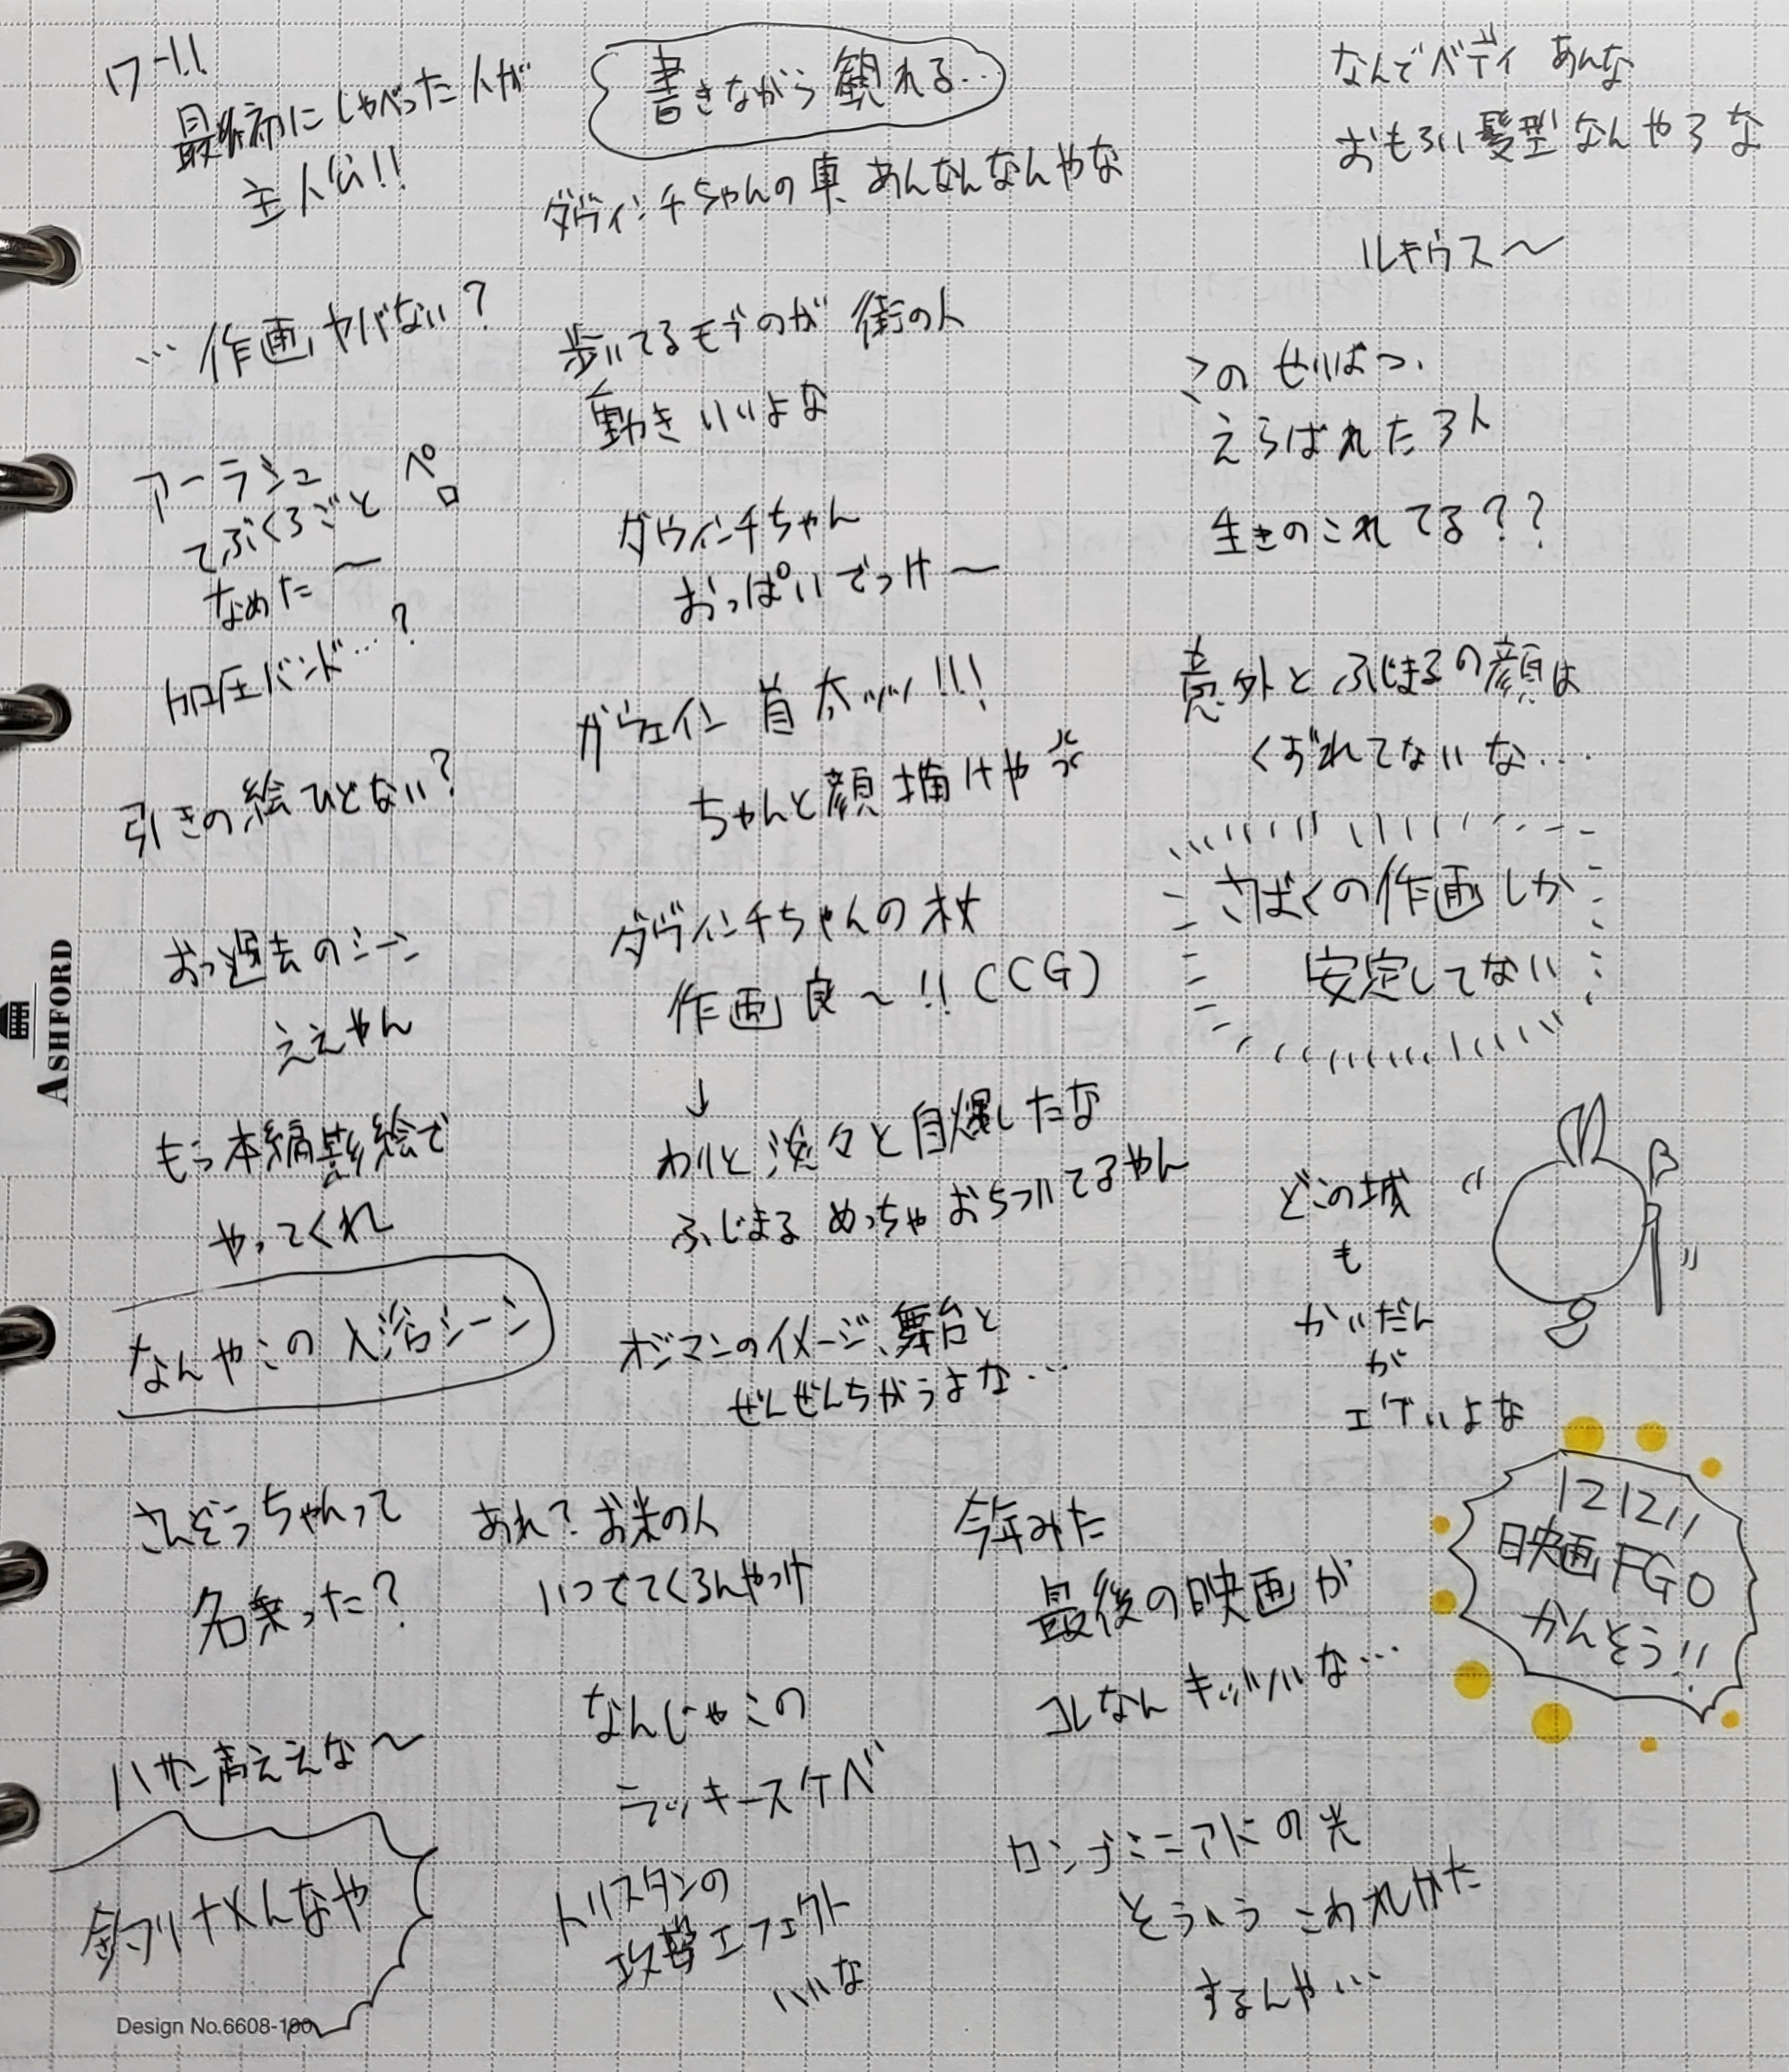 ワー!!
最初にしゃべった人が
主人公!!
…作画ヤバない?
アーラシュ
てぶくろごと
なめた〜
ペロ
加圧バンド…?
引きの絵ひどない?
おっ過去のシーン
ええやん
もう本編影絵で
やってくれ
なんやこの入浴シーン
さんぞうちゃんって
名乗った?
ハサン声ええな〜
釣りナメんなや
書きながら観れる…
ダヴィンチちゃんの車 あんなんなんやな
歩いてるモブのが 街の人
動きいいよな
ダヴィンチちゃん
おっぱいでっけ〜
ガウェイン 首太ッッ!!!
ちゃんと顔描けや
ダヴィンチちゃんの杖
作画良〜!!(CG)
↓
わりと淡々と自爆したな
ふじまるめっちゃおちついてるやん
オジマンのイメージ、舞台と
ぜんぜんちがうよな…
あれ?お米の人
いつでてくるんやっけ
なんじゃこの
ラッキースケベ
トリスタンの
攻撃エフェクト
いいな
なんでベディ あんな
おもろい髪型なんやろな
ルキウス〜
この せいばつ、
えらばれた3人
生きのこれてる??
意外とふじまるの顔は
くずれてないな…
さばくの作画しか
安定してない
どの城
も
かいだん
が
エグいよな
今年みた
最後の映画が
コレなんキッツいな…
ロンゴミニアドの光
そういうこわれかた
するんや…
121211
映画FGO
かんそう!!
ASHFORD
Design No.6608-100